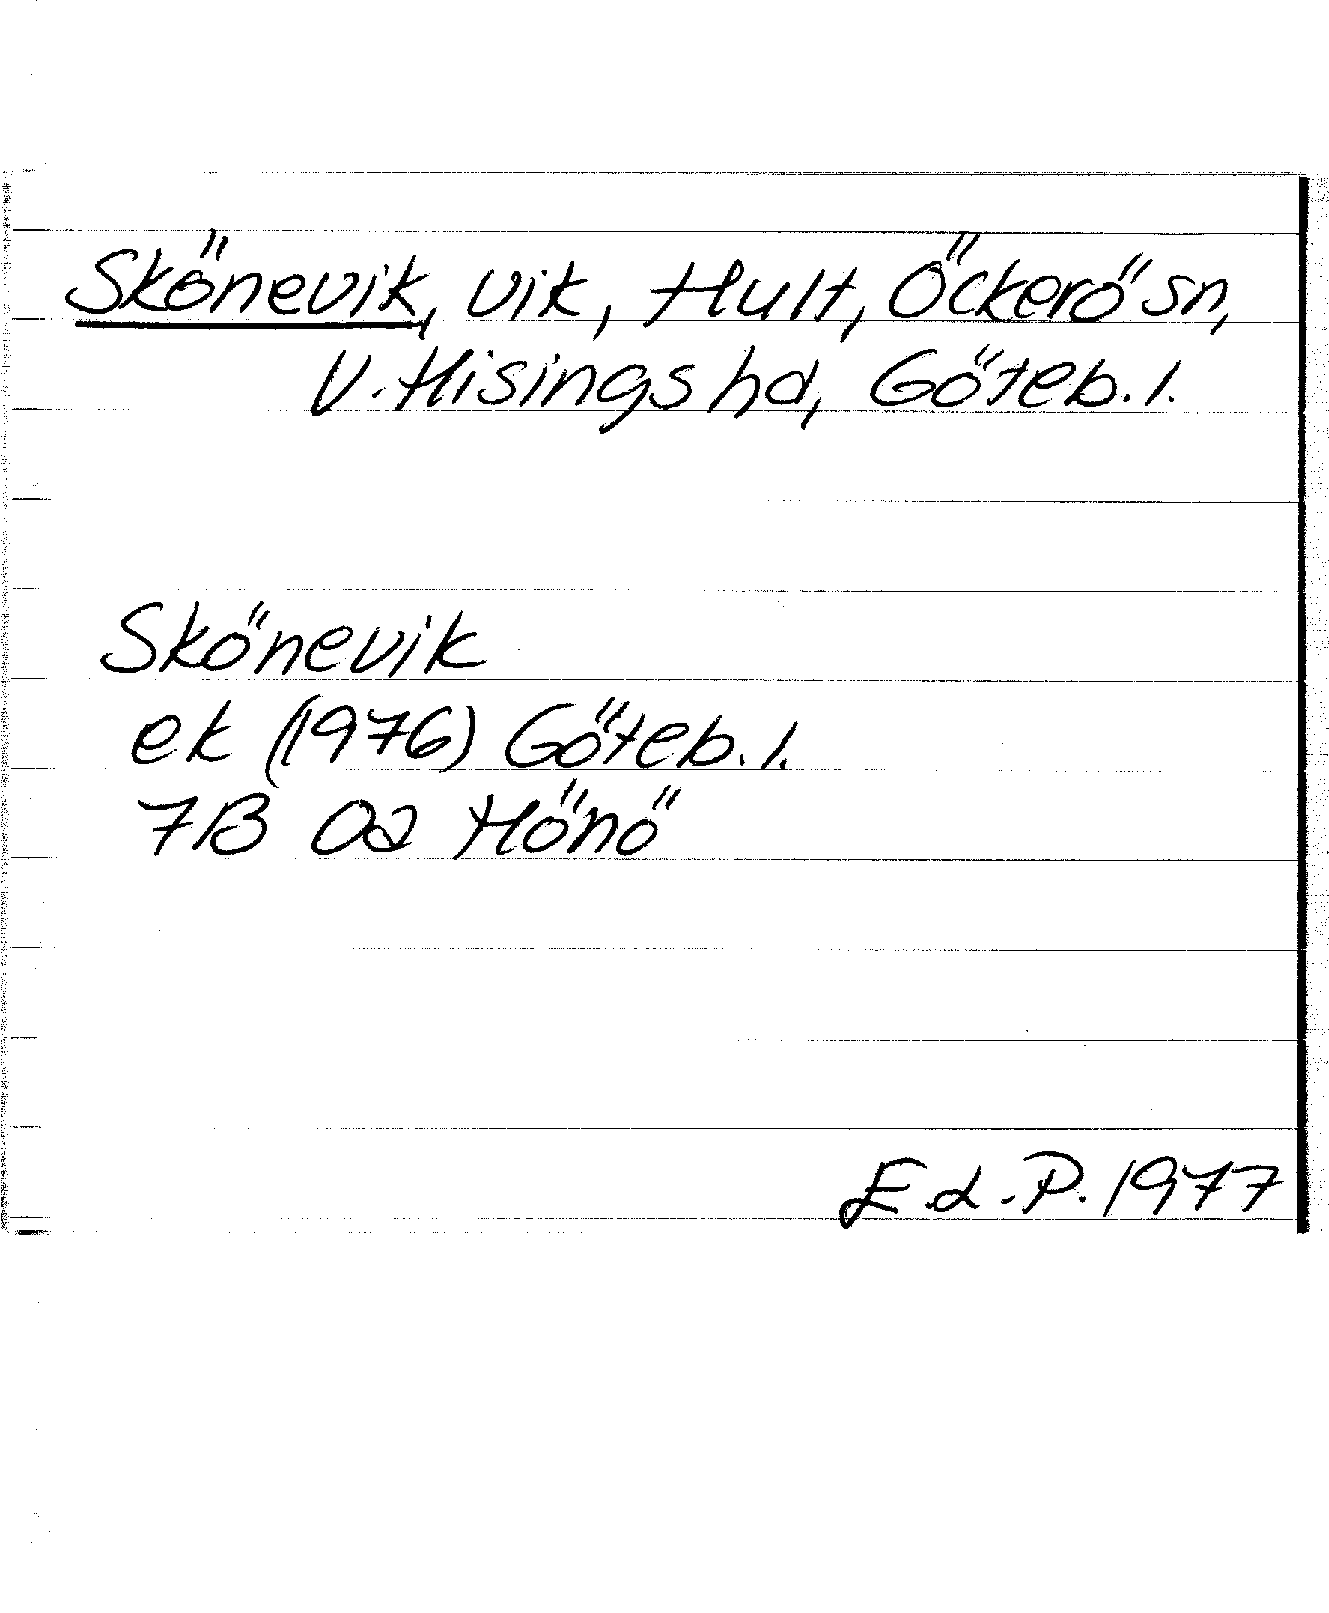 Skönevik, vik, Hult, Öckerö sn,
V. Hisings hd, Göteb. l.
Skönevik
ek (1976) Göteb. l.
7B 0a Hönö
E.d.P. 1977